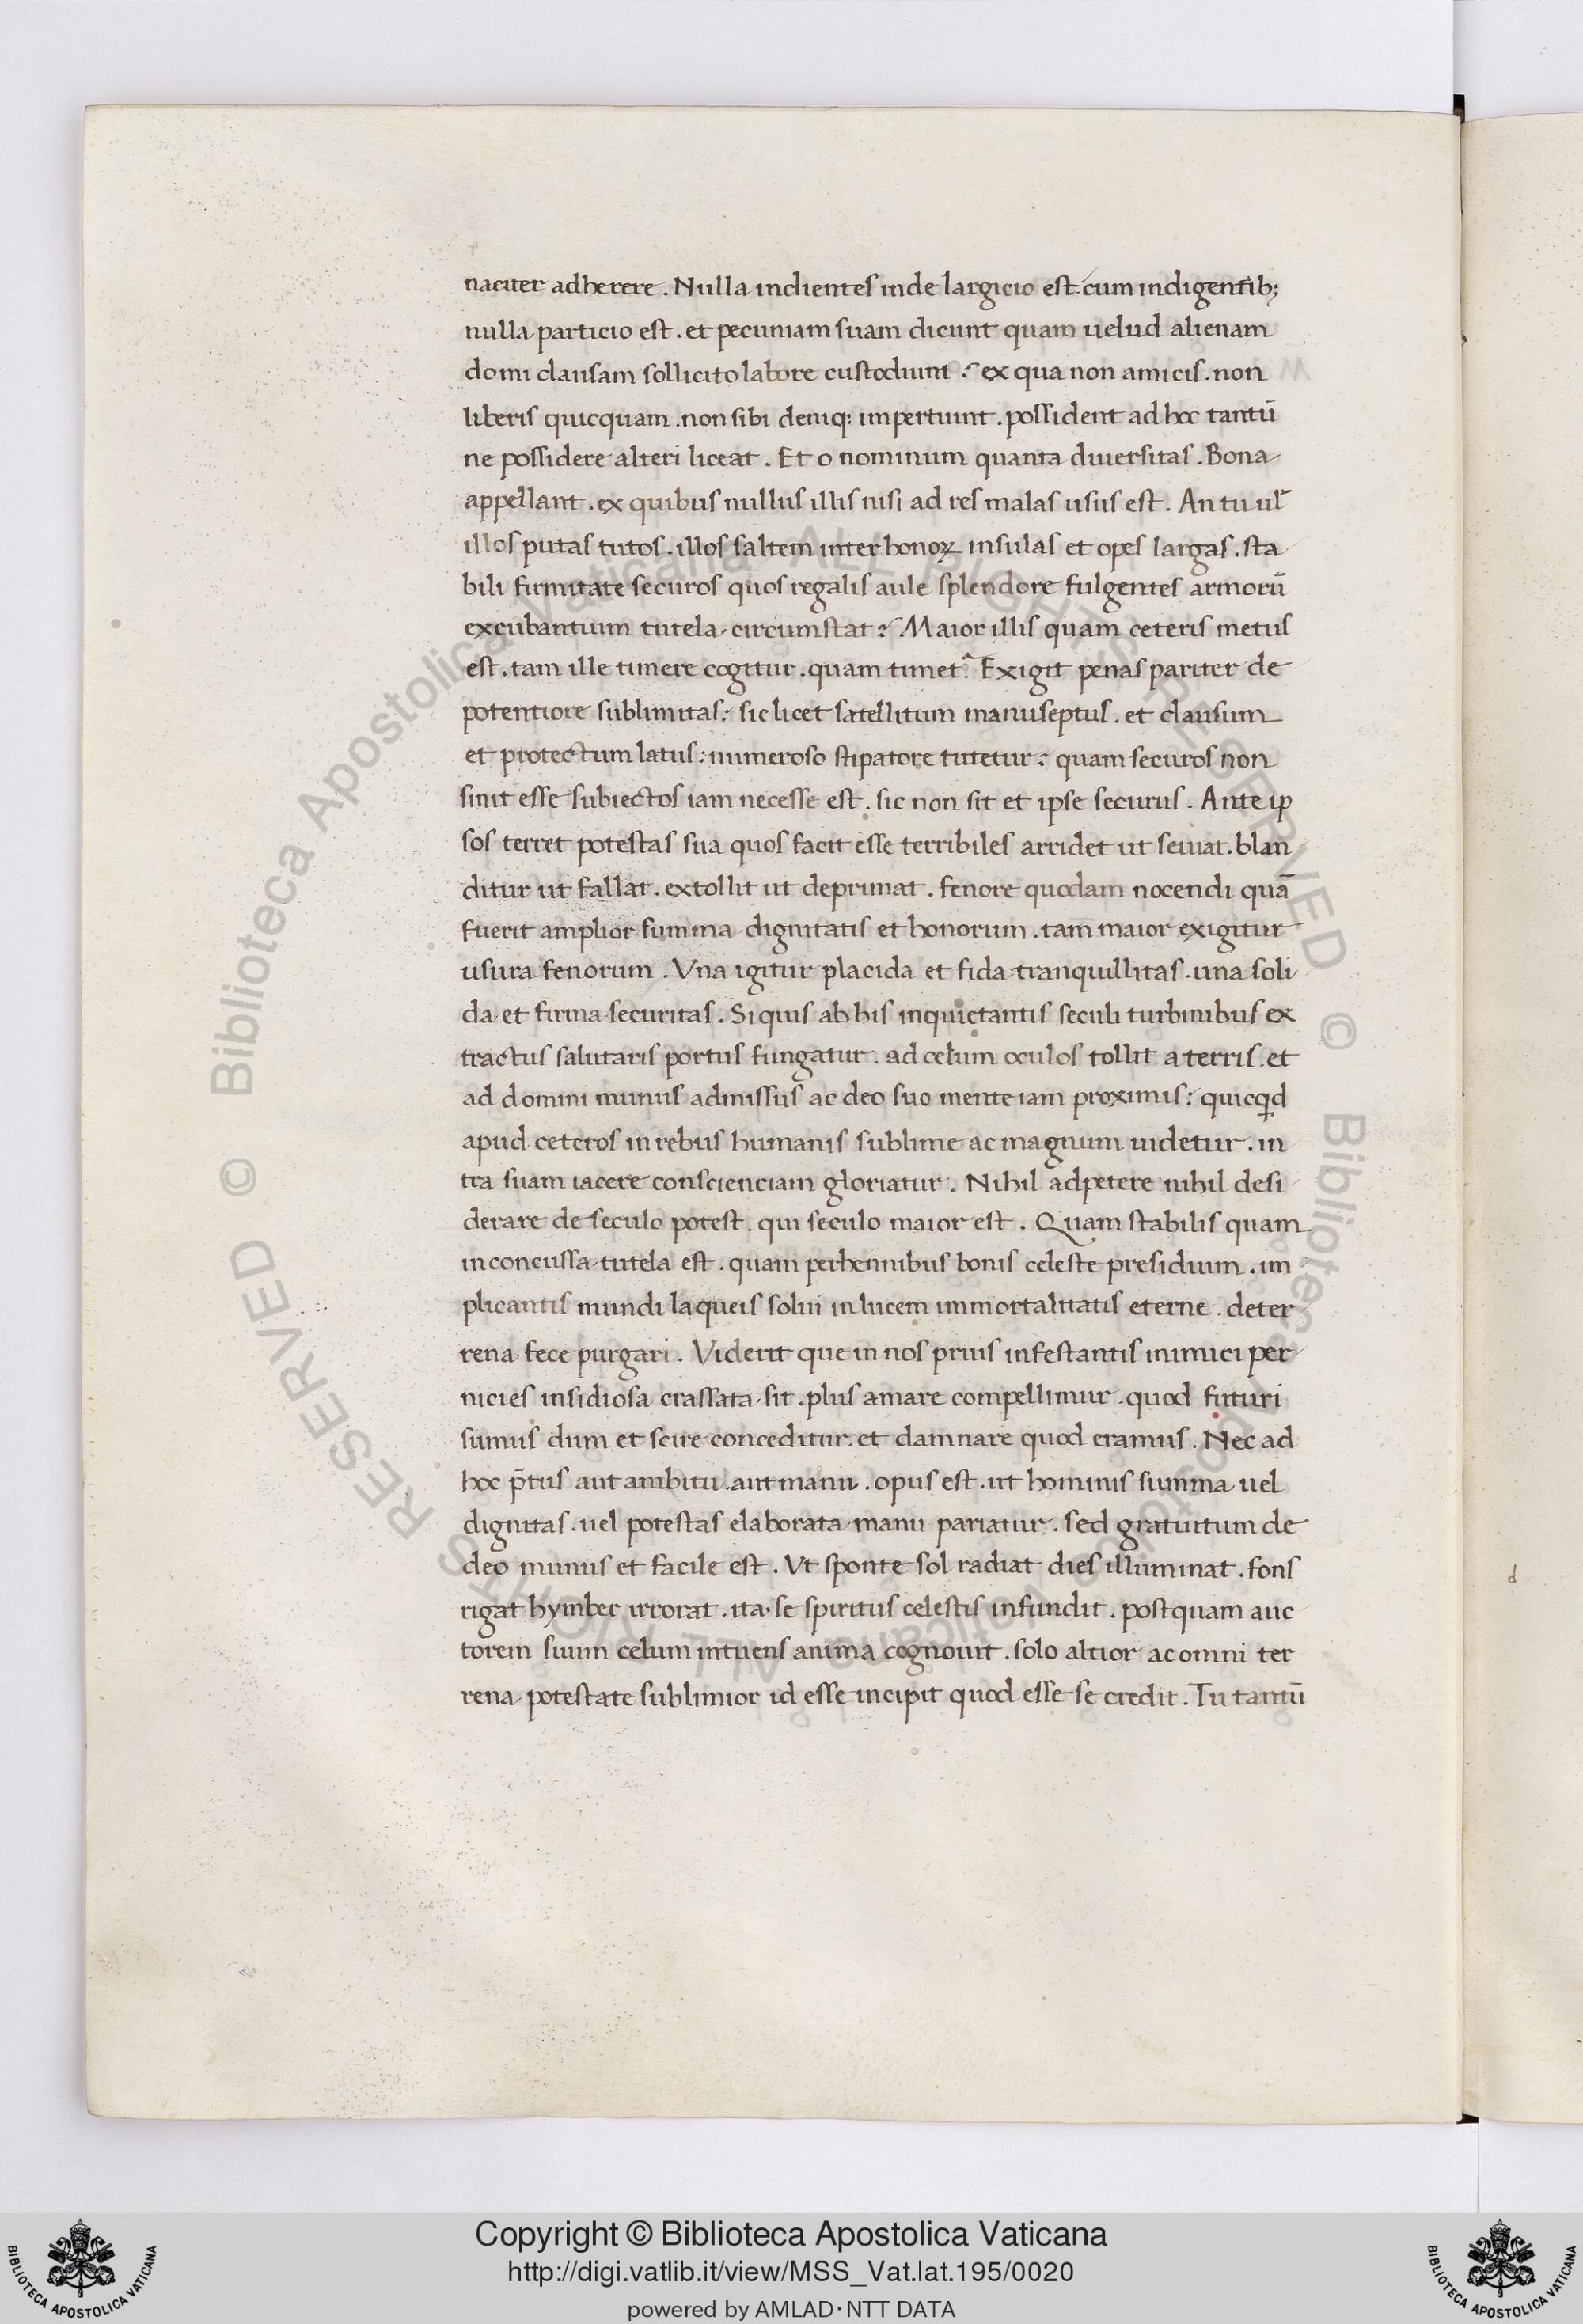 naciter adherere. Nulla inclientes inde largicio est: cum indigentib;
nulla particio est. et pecuniam suam dicunt quam uelud alienam
domi clausam sollicito labore custodiunt: ex qua non amicis. non
liberis quicquam. non sibi deniq: impertiunt. possident ad hoc tantū
ne possidere alteri liceat. Et o nominum quanta diuersitas. Bona
appellant. ex quibus nullus illis nisi ad res malas usus est. An tu ul̄
illos putas tutos. illos saltem inter honoꝝ insulas et opes largas. sta
bili firmitate securos quos regalis aule splendore fulgentes armorū
excubantium tutela circumstat? Maior illis quam ceteris metus
est. tam ille timere cogitur. quam timet. Exigit penas pariter de
potentiore sublimitas: sic licet satellitum manuseptus. et clausum
et protectum latus: numeroso stipatore tutetur: quam securos non
sinit esse subiectos iam necesse est. sic non sit et ipse securus. Ante ip
sos terret potestas sua quos facit esse terribiles arridet ut seuiat. blan
ditur ut fallat. extollit ut deprimat. fenore quodam nocendi quā
fuerit amplior summa dignitatis et honorum. tam maior exigitur
usura fenorum. Vna igitur placida et fida tranquillitas. una soli
da et firma securitas. Siquis ab his inquietantis seculi turbinibus ex
tractus salutaris portus fungatur. ad celum oculos tollit a terris. et
ad domini munus admissus ac deo suo mente iam proximis: quicqd
apud ceteros in rebus humanis sublime ac magnum uidetur. in
tra suam iacere conscienciam gloriatur. Nihil adpetere nihil desi
derare de seculo potest. qui seculo maior est. Quam stabilis quam
inconcussa tutela est. quam perhennibus bonis celeste presidium. im
plicantis mundi laqueis solui in lucem immortalitatis eterne. deter
rena fece purgari. Viderit que in nos prius infestantis inimici per
nicies insidiosa crassata sit. plus amare compellimur. quod futuri
sumus dum et scire conceditur. et damnare quod eramus. Nec ad
hoc p̄tus aut ambitu. aut manu. opus est. ut hominis summa uel
dignitas. uel potestas elaborata manu pariatur. sed gratuitum de
deo munus et facile est. Vt sponte sol radiat dies illuminat. fons
rigat hymber irrorat. ita se spiritus celestis infundit. postquam auc
torem suum celum intuens anima cognouit. solo altior ac omni ter
rena potestate sublimior id esse incipit quod esse se credit. Tu tantū
d
© Biblioteca Apostolica Vaticana ALL RIGHTS RESERVED © Biblioteca Apostolica Vaticana ALL RIGHTS RESERVED
Copyright © Biblioteca Apostolica Vaticana
http://digi.vatlib.it/view/MSS_Vat.lat.195/0020
powered by AMLAD·NTT DATA
BIBLIOTECA APOSTOLICA VATICANA
BIBLIOTECA APOSTOLICA VATICANA